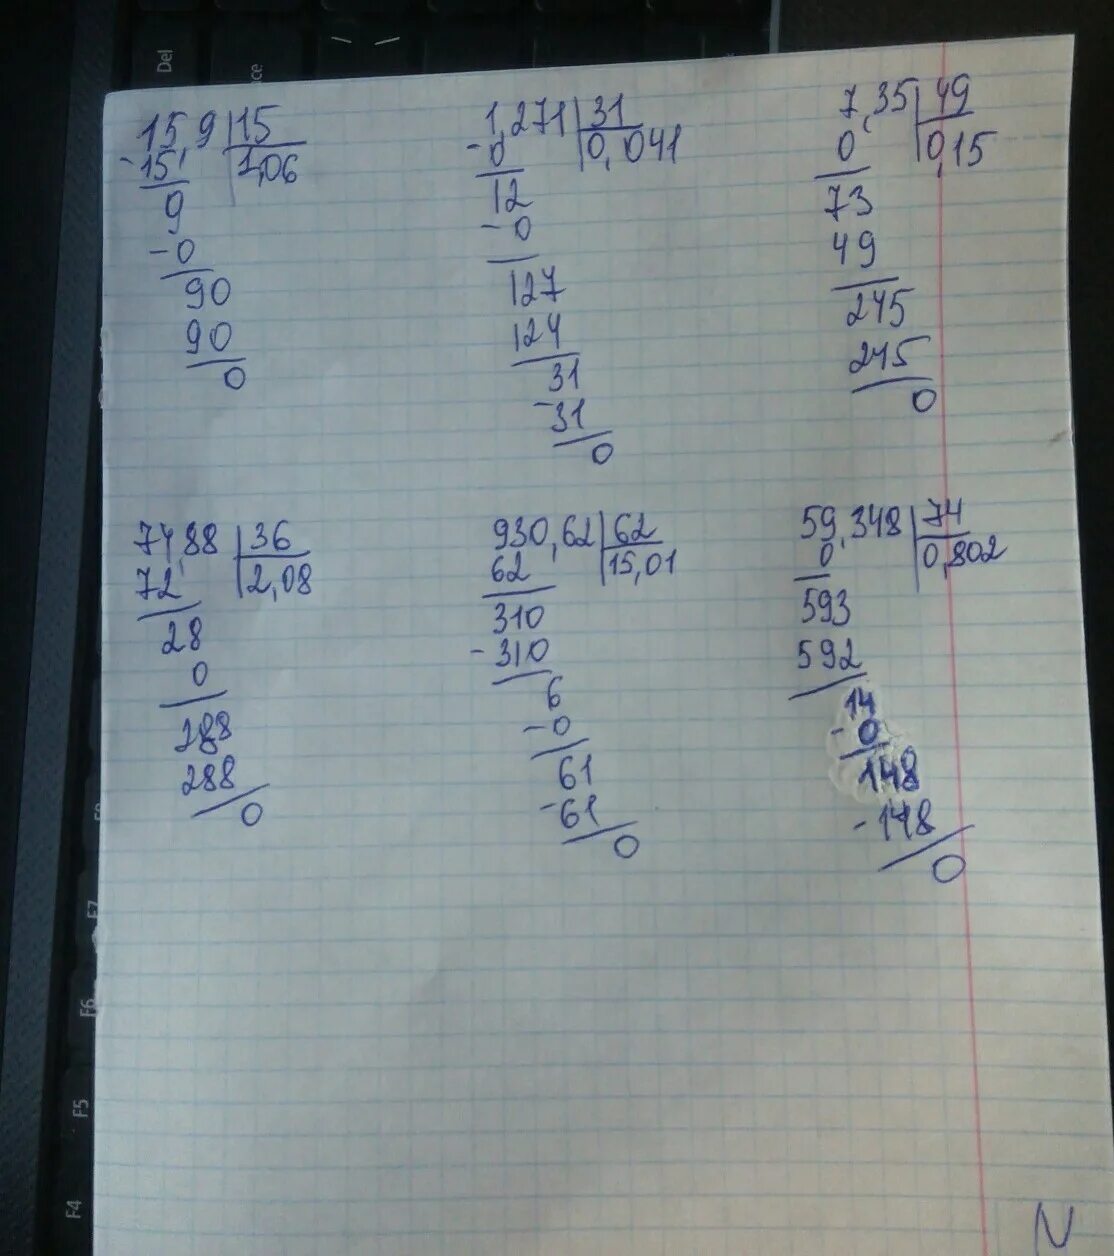 15,9 | 15
- 15 | 1,06
9
- 0
90
90
0
1,271 | 31
- 0 | 0,041
12
- 0
127
124
31
- 31
0
7,35 | 49
0 | 0,15
73
49
245
245
0
74,88 | 36
72 | 2,08
28
0
288
288
0
930,62 | 62
62 | 15,01
310
- 310
6
- 0
61
- 61
0
59,348 | 74
0 | 0,802
593
592
14
- 0
148
- 148
0
N
Del
F7
F6
F5
F4